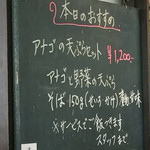 本日のおすすめ
アナゴの天ぷらセット
¥1,200-
アナゴと野菜の天ぷら
そば 150g (せいろ かけ)
※サービスでご飯つきます
スタッフまで